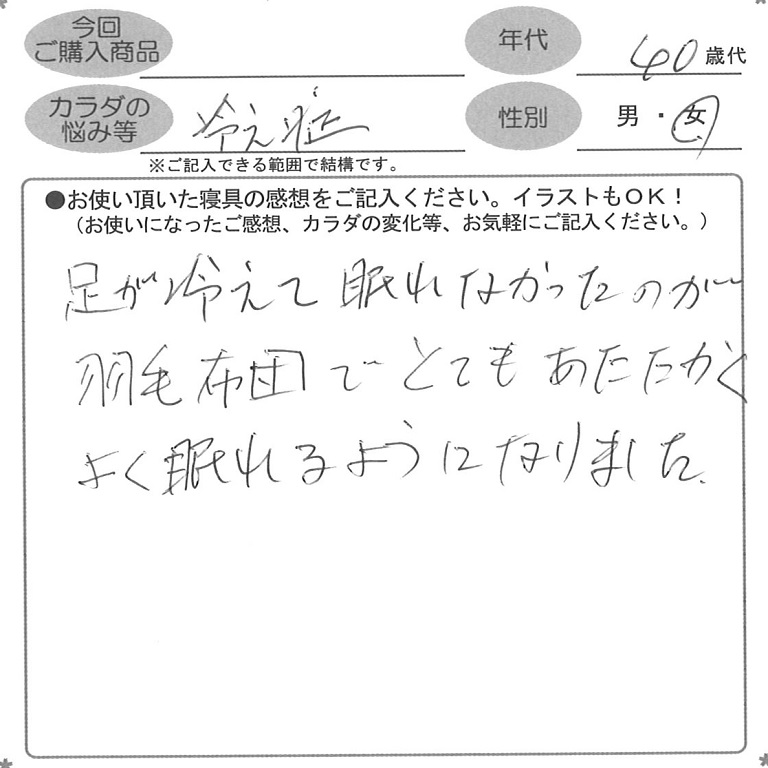 今回
ご購入商品
年代 40歳代
カラダの
悩み等
冷え症
性別 男・女
※ご記入できる範囲で結構です。
●お使い頂いた寝具の感想をご記入ください。イラストもOK！
（お使いになったご感想、カラダの変化等、お気軽にご記入ください。）
足が冷えて眠れなかったのが
羽毛布団でとてもあたたかく
よく眠れるようになりました.